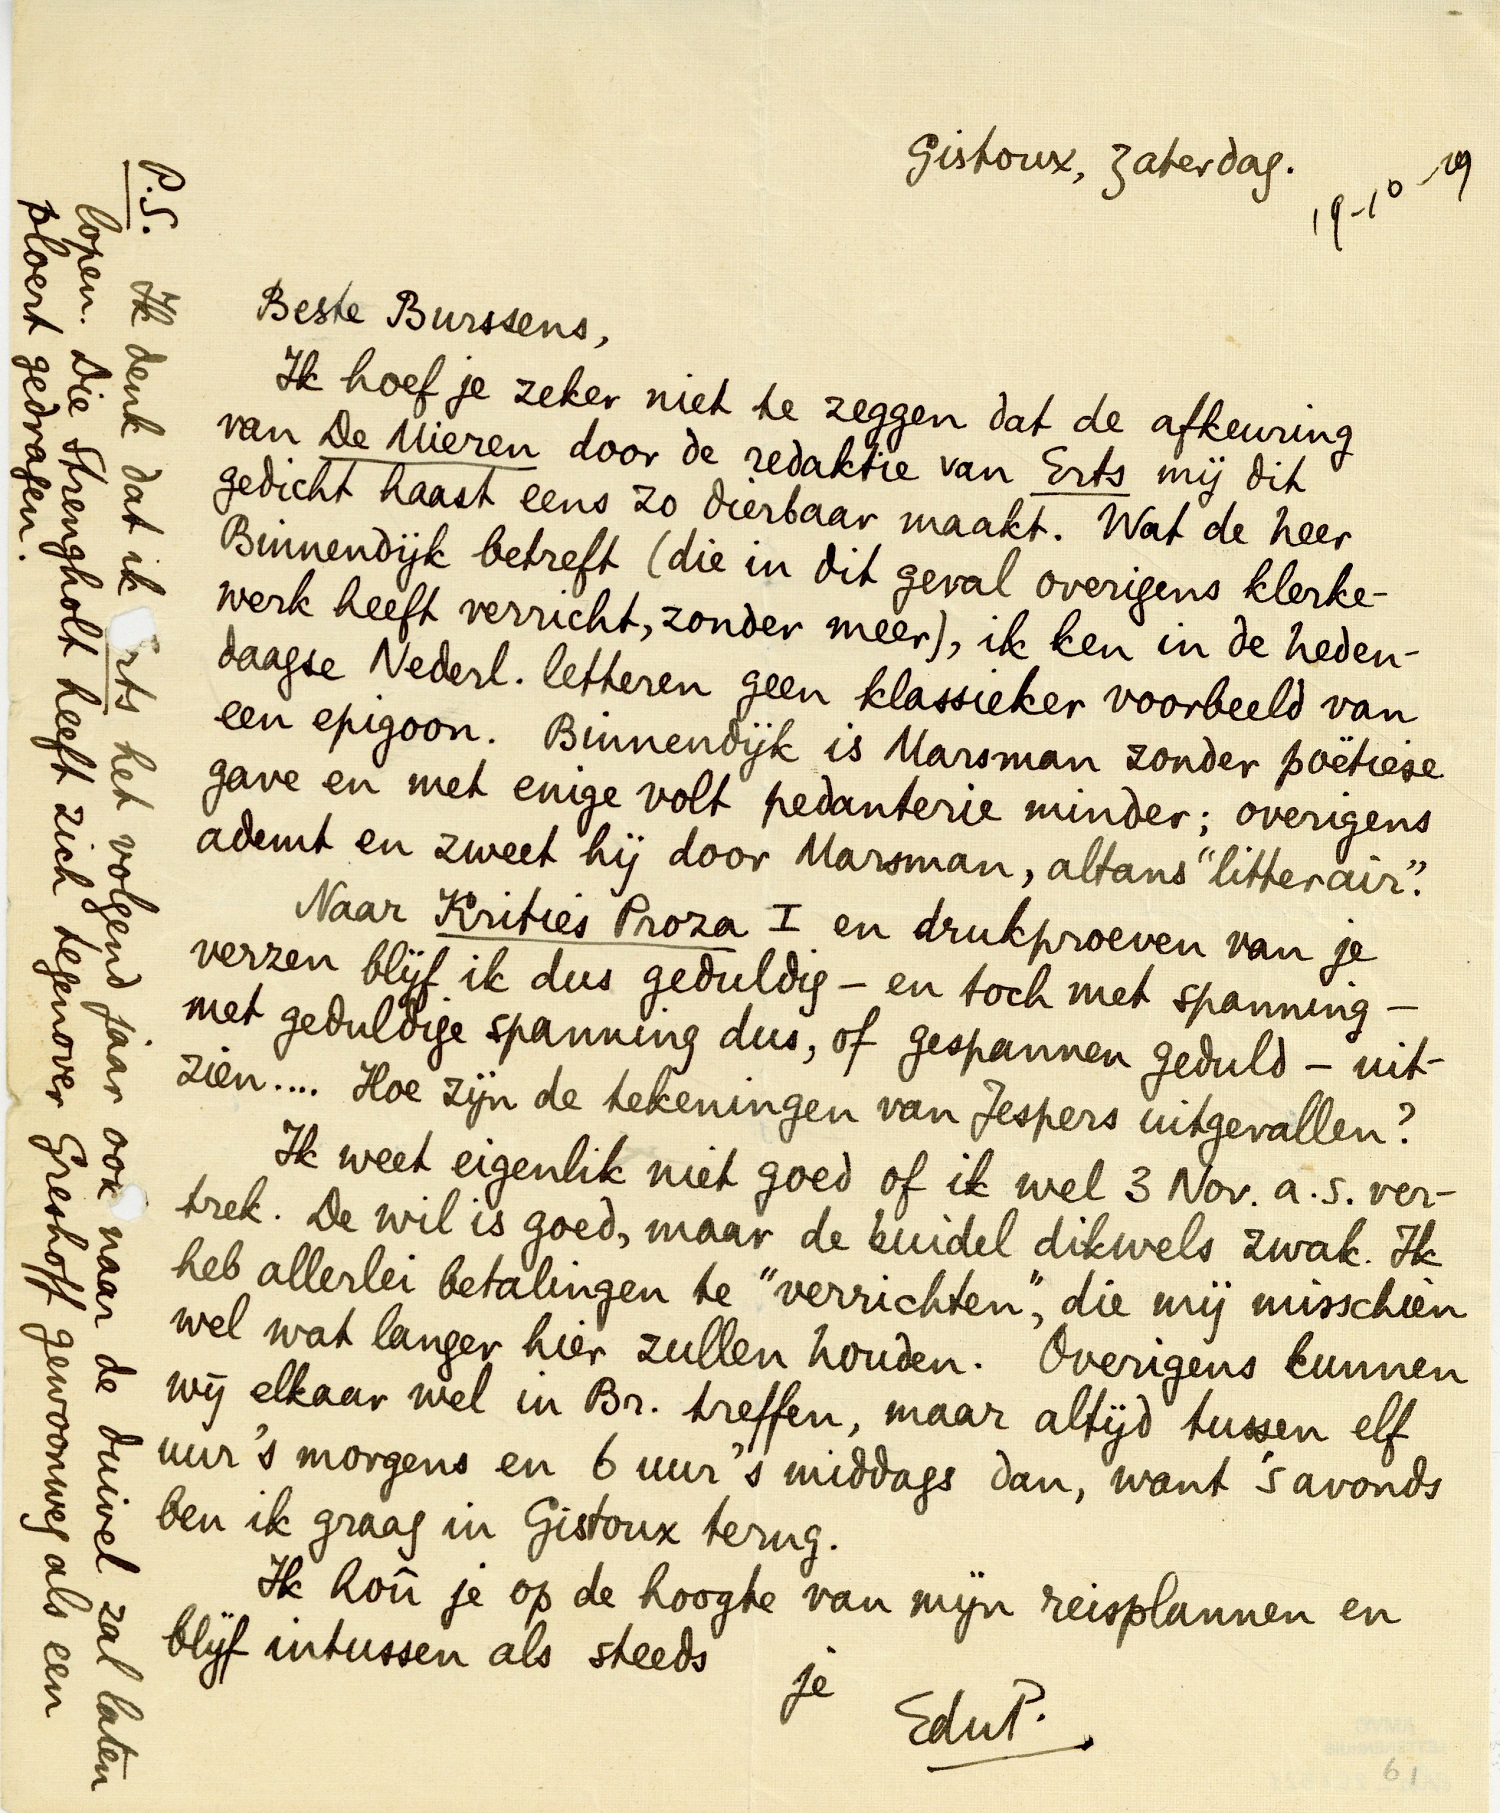 Gistoux, Zaterdag.
19-10-29
Beste Burssens,
Ik hoef je zeker niet te zeggen dat de afkeuring
van De Mieren door de redaktie van Erts mij dit
gedicht haast eens zo dierbaar maakt. Wat de heer
Binnendijk betreft (die in dit geval overigens klerke-
werk heeft verricht, zonder meer), ik ken in de heden-
daagse Nederl. letteren geen klassieker voorbeeld van
een epigoon. Binnendijk is Marsman zonder poëtiese
gave en met enige volt pedanterie minder; overigens
ademt en zweet hij door Marsman, altans "litterair".
Naar Kritiès Proza I en drukproeven van je
verzen blijf ik dus geduldig – en toch met spanning –
met geduldige spanning dus, of gespannen geduld – uit-
zien..... Hoe zijn de tekeningen van Jespers uitgevallen?
Ik weet eigenlik niet goed of ik wel 3 Nov. a.s. ver-
trek. De wil is goed, maar de buidel dikwels zwak. Ik
heb allerlei betalingen te "verrichten", die mij misschien
wel wat langer hier zullen houden. Overigens kunnen
wij elkaar wel in Br. treffen, maar altijd tussen elf
uur 's morgens en 6 uur 's middags dan, want 's avonds
ben ik graag in Gistoux terug.
Ik hoû je op de hoogte van mijn reisplannen en
blijf intussen als steeds
je
EduP.
P.S. Ik denk dat ik Erts het volgend jaar ook naar de duivel zal laten
lopen. Die Strengholt heeft zich tegenover Greshoff gewoonweg als een
ploert gedragen.
61